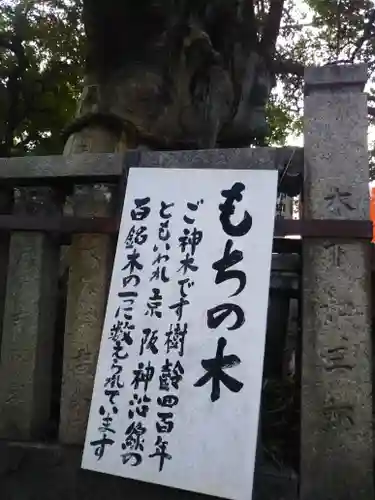 もちの木
ご神木です樹齢四百年
ともいわれ京阪神沿線の
百銘木の一に数えられています